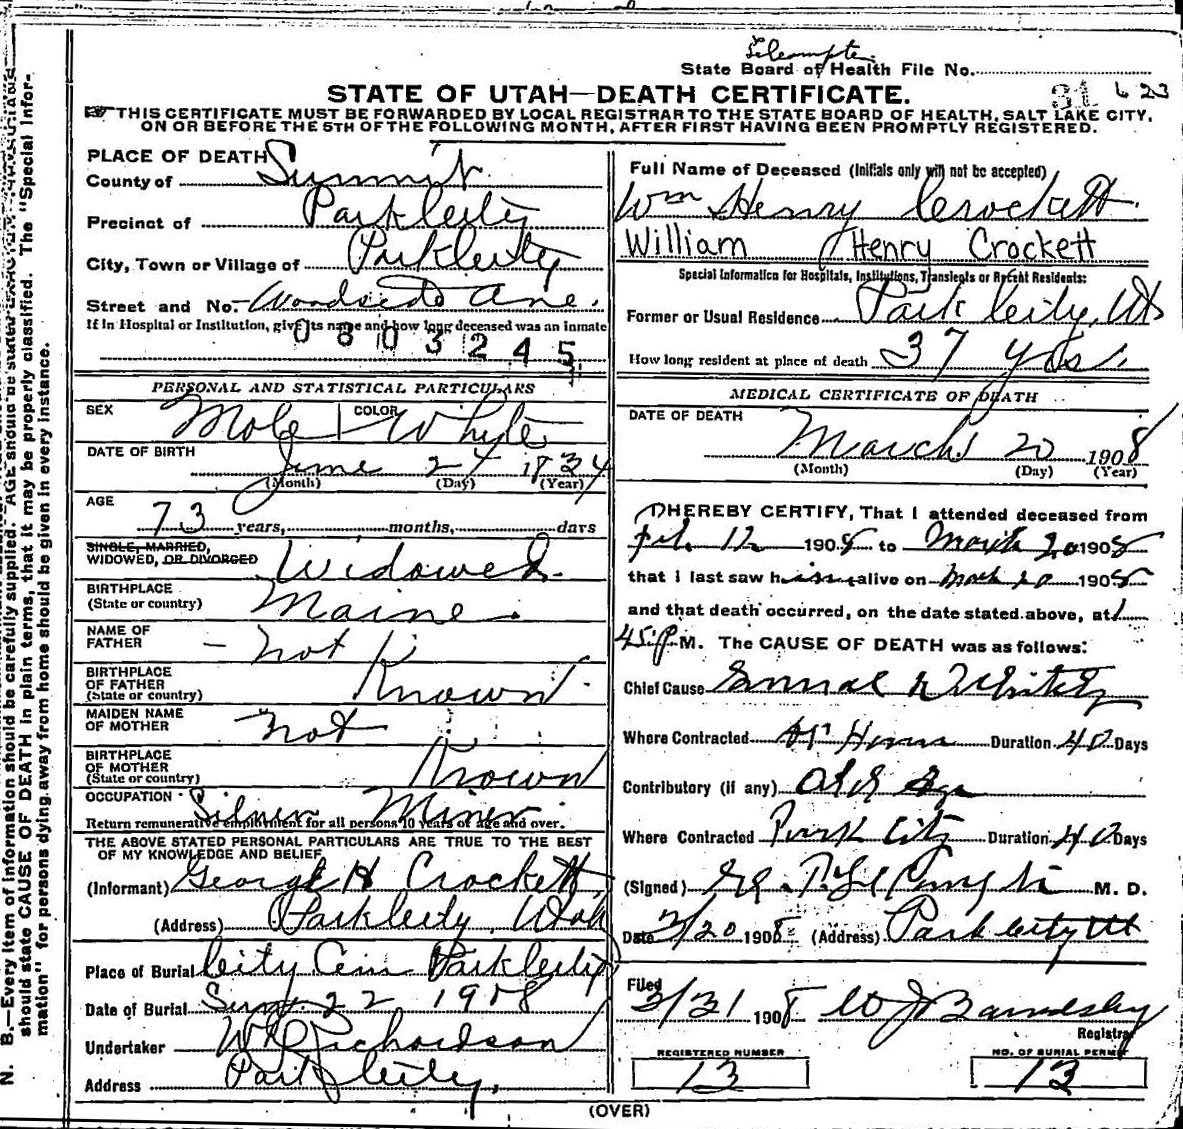 State Board of Health File No.
STATE OF UTAH—DEATH CERTIFICATE.
31 623
THIS CERTIFICATE MUST BE FORWARDED BY LOCAL REGISTRAR TO THE STATE BOARD OF HEALTH, SALT LAKE CITY,
ON OR BEFORE THE 5TH OF THE FOLLOWING MONTH, AFTER FIRST HAVING BEEN PROMPTLY REGISTERED.
PLACE OF DEATH
County of Summit
Precinct of Park City
City, Town or Village of Park City
Street and No. Woodside Ave.
If in Hospital or Institution, give its name and how long deceased was an inmate
0803245
PERSONAL AND STATISTICAL PARTICULARS
SEX Male COLOR White
DATE OF BIRTH June 24 1834
(Month) (Day) (Year)
AGE 73 years, months, days
SINGLE, MARRIED,
WIDOWED, OR DIVORCED Widowed
BIRTHPLACE
(State or country) Maine
NAME OF
FATHER not
BIRTHPLACE
OF FATHER
(State or country) Known
MAIDEN NAME
OF MOTHER not
BIRTHPLACE
OF MOTHER
(State or country) Known
OCCUPATION Silver Miner
Return remunerative employment for all persons 10 years of age and over.
THE ABOVE STATED PERSONAL PARTICULARS ARE TRUE TO THE BEST
OF MY KNOWLEDGE AND BELIEF
(Informant) George H Crockett
(Address) Park City, Utah
Place of Burial City Cem Park City
Date of Burial 22 1908
Undertaker W Richardson
Address Park City,
Full Name of Deceased (Initials only will not be accepted)
Wm Henry Crockett
William Henry Crockett
Special Information for Hospitals, Institutions, Transients or Recent Residents:
Former or Usual Residence Park City, Ut
How long resident at place of death 37 yrs.
MEDICAL CERTIFICATE OF DEATH
DATE OF DEATH
March 20 1908
(Month) (Day) (Year)
I HEREBY CERTIFY, That I attended deceased from
Feb. 12 1908 to March 20 1908
that I last saw him alive on Mch 20 1908
and that death occurred, on the date stated above, at 1
45 P M. The CAUSE OF DEATH was as follows:
Chief Cause
Where Contracted At Home Duration 40 Days
Contributory (if any) Old Age
Where Contracted Park City Duration 40 Days
(Signed) M. D.
Date 3/20 1908 (Address) Park City Ut
Filed
3/31 1908
Registrar
REGISTERED NUMBER
13
NO. OF BURIAL PERMIT
13
(OVER)
N. B.—Every item of information should be carefully supplied. AGE should be stated EXACTLY.
should state CAUSE OF DEATH in plain terms, that it may be properly classified. The "Special Infor-
mation" for persons dying away from home should be given in every instance.